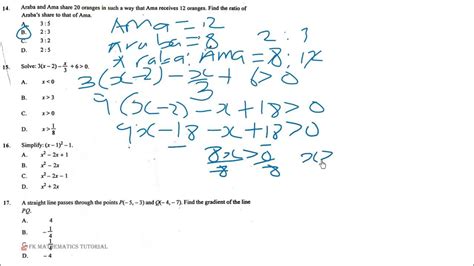 14. Araba and Ama share 20 oranges in such a way that Ama receives 12 oranges. Find the ratio of
Araba's share to that of Ama.
A. 3 : 5
B. 2 : 3
C. 3 : 2
D. 2 : 5
Ama = 12
Araba = 8
2 : 3
Araba : Ama = 8 : 12
15. Solve: 3(x − 2) − x/3 + 6 > 0.
A. x < 0
B. x > 3
C.
D. x > 0
3(x-2) - x/3 + 6 > 0
9(x-2) - x + 18 > 0
9x - 18 - x + 18 > 0
8x > 0
8 8
x >
16. Simplify: (x − 1)² − 1.
A. x² − 2x + 1
B. x² − 2x − 1
C. x² − 2x
D. x² + 2x
17. A straight line passes through the points P(−5, −3) and Q(−4, −7). Find the gradient of the line
PQ.
A. 4
B. −1/4
FK MATHEMATICS TUTORIAL
D. −4